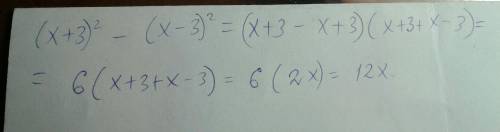 (x+3)² - (x-3)² = (x+3 - x+3)(x+3+x-3)=
= 6(x+3+x-3) = 6(2x) = 12x.